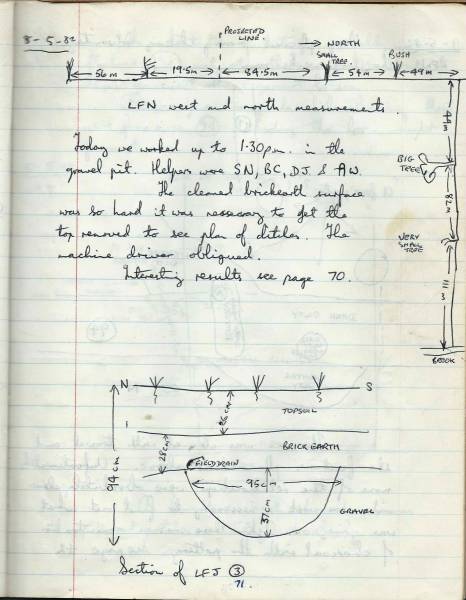 8-5-82
PROJECTED
LINE.
NORTH
SMALL
TREE.
BUSH
56m
19.5m
34.5m
54m
49m
LFN west and north measurements.
44m
Today we worked up to 1.30pm. in the
gravel pit. Helpers were SN, BC, DJ & AW.
The cleaned brickearth surface
was so hard it was necessary to get the
top removed to see plan of ditches. The
machine driver obligued.
Interesting results see page 70.
BIG
TREE
78 m
VERY
SMALL
TREE
111 m
BROOK
N
S
TOPSOIL
26cm
BRICKEARTH
28cm
94cm
FIELDDRAIN
95cm
37cm
GRAVEL
Section of LFJ 3
71.